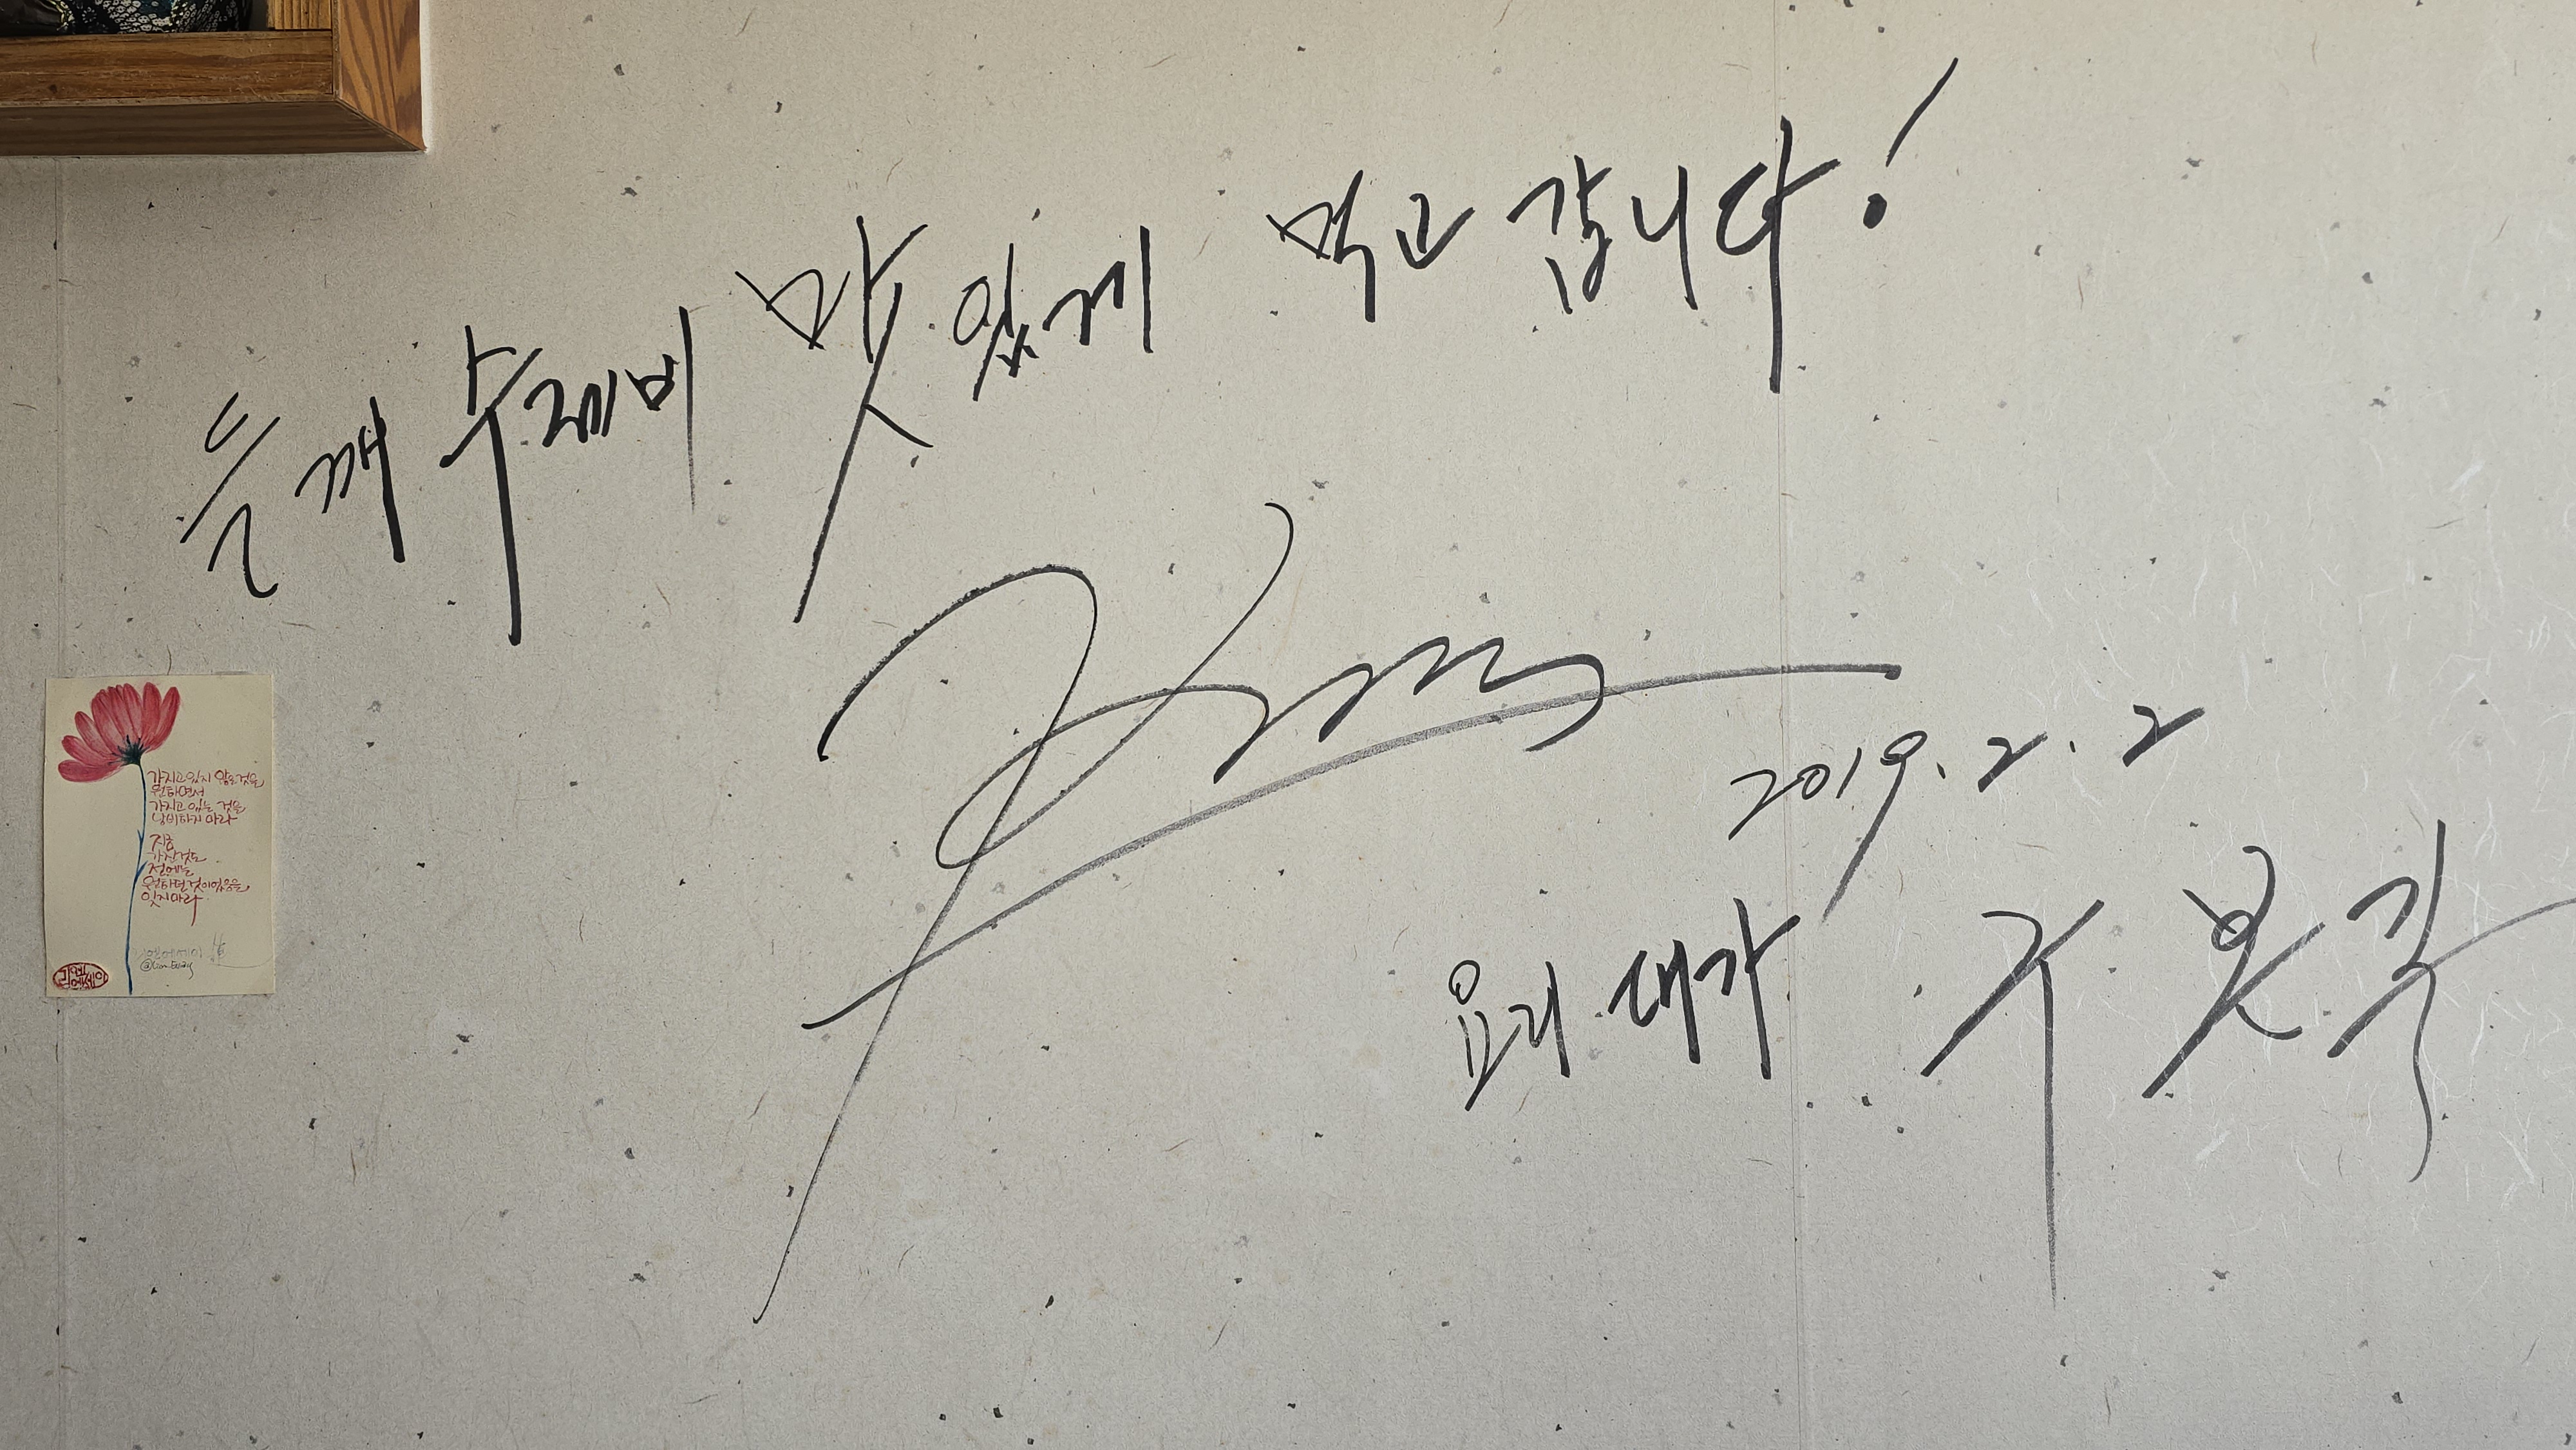 들깨 수제비 맛있게 먹고 갑니다!
2019. 2. 2
요리 대가
가지고 있지 않은 것을
원하면서
가지고 있는 것을
낭비하지 마라
지금
가진것도
전에는
원하던것이었음을
잊지마라